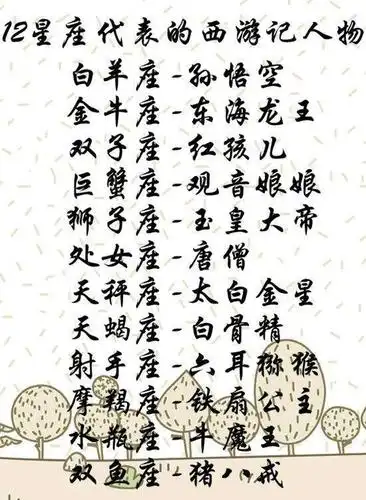 12星座代表的西游记人物
白羊座-孙悟空
金牛座-东海龙王
双子座-红孩儿
巨蟹座-观音娘娘
狮子座-玉皇大帝
处女座-唐僧
天秤座-太白金星
天蝎座-白骨精
射手座-六耳猕猴
摩羯座-铁扇公主
水瓶座-牛魔王
双鱼座-猪八戒